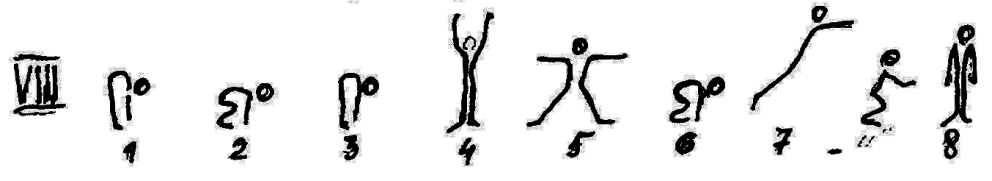 VIII
1 2 3 4 5 6 7 - " " 8